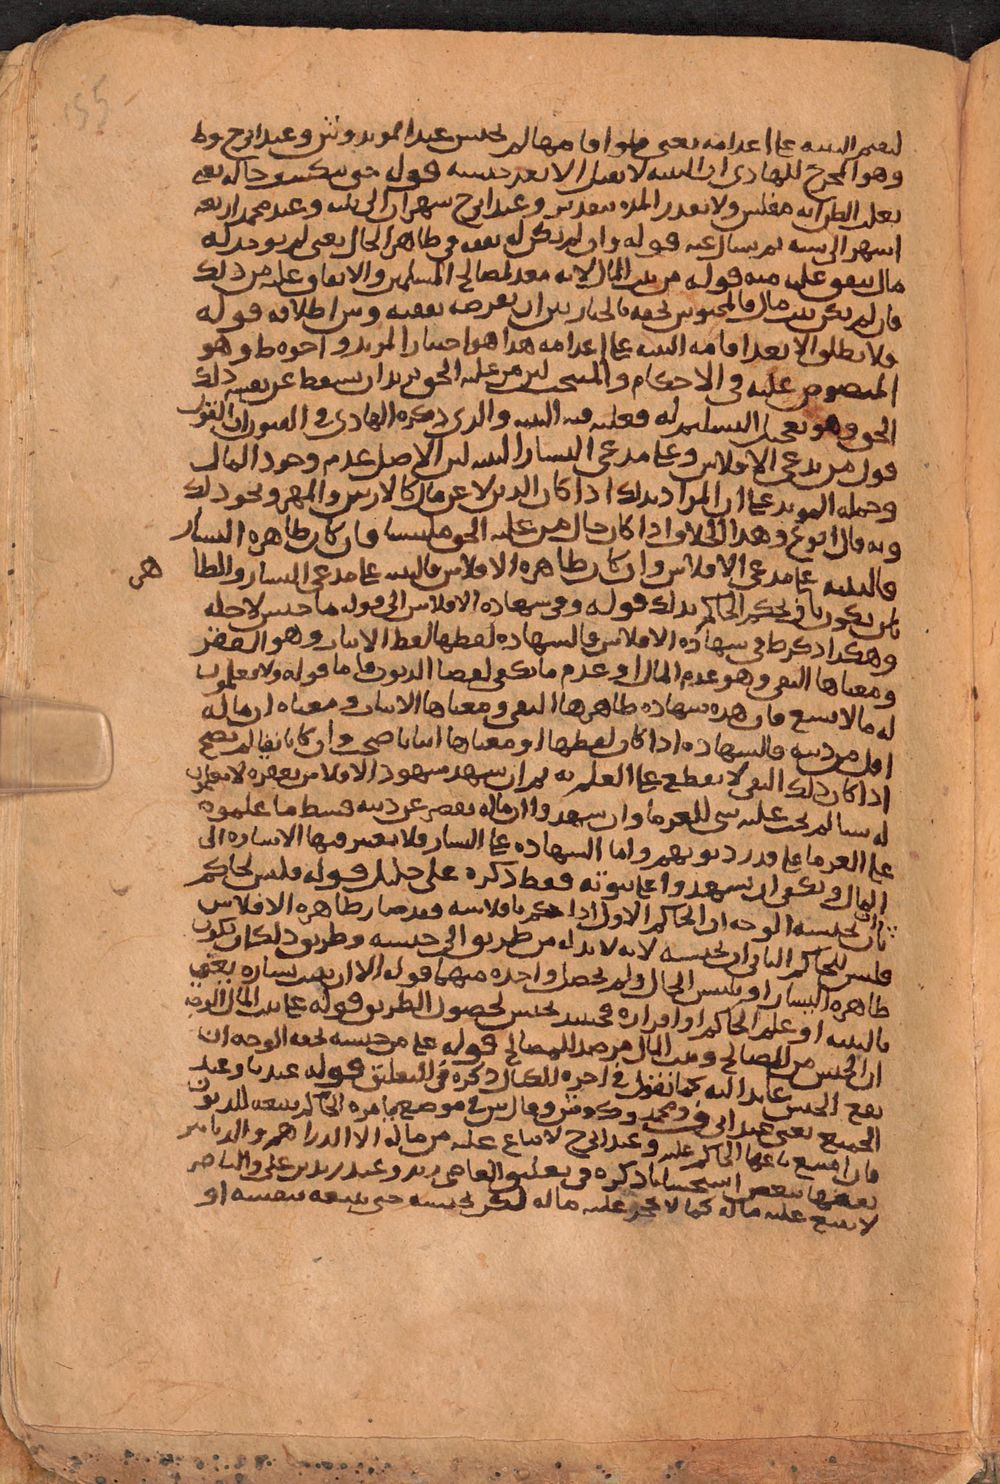 ليقيم البينه على اعدامه يعنى فلو اقامها لم يحبس عند المويد وش وعند ابى ح وط
وهو المخرج للهادى ان البينه لا تقبل الا بعد حبسه قوله حتى ينكشف حاله يعنى
يغلب الظن انه مفلس ولا تقدر المده بتقدير وعند ابى ح شهران الى ثلثه وعند محمد اربعه
اشهر الى سته ثم يسال عنه قوله وان لم يكن له نفقه فى ظاهر الحال يعنى لم يوجد له
مال ينفق عليه منه قوله من بيت المال لانه معد لمصالح المسلمين والانفاق عليه من ذلك
فان لم يكن بيت مال فالمحبوس لحقه بالخيار بين ان يقرضه نفقته وبين اطلاقه قوله
ولا يطلق الا بعد اقامه البينه على اعدامه هذا هو اختيار المويد واخوه ط وهو
المنصوص عليه فى الاحكام والمنتخب لان من عليه الحق يريد ان يسقط عن نفسه ذلك
الحق وهو تعجيل التسليم له فعليه فيه البينه والذى ذكره الهادى فى الفنون ان القول
قول من يدعى الافلاس وعلى مدعى اليسار البينه لان الاصل عدم وجود المال
وحمله المويد على ان المراد بذلك اذا كان الدين لا عن مال كالارش والمهر ونحو ذلك
وبه قال ابو ع وهذا الخلاف اذا كان حال من عليه الحق ملتبسا فان كان ظاهره اليسار
فالبينه على مدعى الافلاس وان كان ظاهره الافلاس فالبينه على مدعى اليسار والظا
هر
بان يكون باقى بحكم الحاكم بذلك قوله وفى شهاده الافلاس الى قوله ما حبس لاجله
وهكذا ذكر ط فى شهاده الافلاس فالشهاده لفظها لفظ الاثبات وهو الفقر
ومعناها النفى وهو عدم المال او عدم ما يكفى لقضا الديون فاما قوله ولا يعلمون
له مالا سع فان هذه شهاده ظاهرها النفى ومعناها الاثبات ومعناه ان ماله
اقل من دينه فالشهاده اذا كان لفظها او معناها اثباتا صحت وان كانا نفيا لم يصح
اذا كان ذلك النفى لا يقطع على العلم به ثم ان شهد شهود الافلاس بفقره لا يعلمون
له شيا لم يجب عليه شى للغرما وان شهدوا ان ماله يقصر عن دينه قسط ما علموه
على الغرما على قدر ديونهم واما الشهاده على اليسار فلا يعتبر فيها الاشاره الى
المال ويكفى ان يشهدوا على ثبوته فقط ذكره على خليل قوله فليس لحاكم
ثان ان يحبسه الوجه ان الحاكم الاول اذا حكم بافلاسه وقد صار ظاهره الافلاس
فليس للحاكم الثانى ان يحبسه لانه لا بد له من طريق الى حبسه وطريق ذلك ان يكون
ظاهره اليسار او يلتبس الحال ولم يحصل واحده منهما قوله الا ان يصح يساره يعنى
بالبينه او علم الحاكم او اقراره فحينئذ يحبس لحصول الطريق قوله على بيت المال الوجه
ان الحبس من المصالح وبيت المال مرصد للمصالح قوله على من حبسه لحقه الوجه ان
نفع الحبس عايد اليه كما نقول فى اجره الكيال ذكره فى التعليق قوله عند نا وعند
الجميع يعنى عند ابى ف ومحمد وك وش وقال ش فى موضع يامره الحاكم ببيعه للديون
فان امتنع باعها الحاكم عليه وعند ابى ح لا يباع عليه من ماله الا الدراهم والدنانير
بعضها ببعض استحسانا ذكره فى تعليق القاضى زيد وعند زيد بن على والناصر
لا يبيع عليه ماله كما لا يحجر عليه ماله لكن يحبسه حتى يبيعه بنفسه او